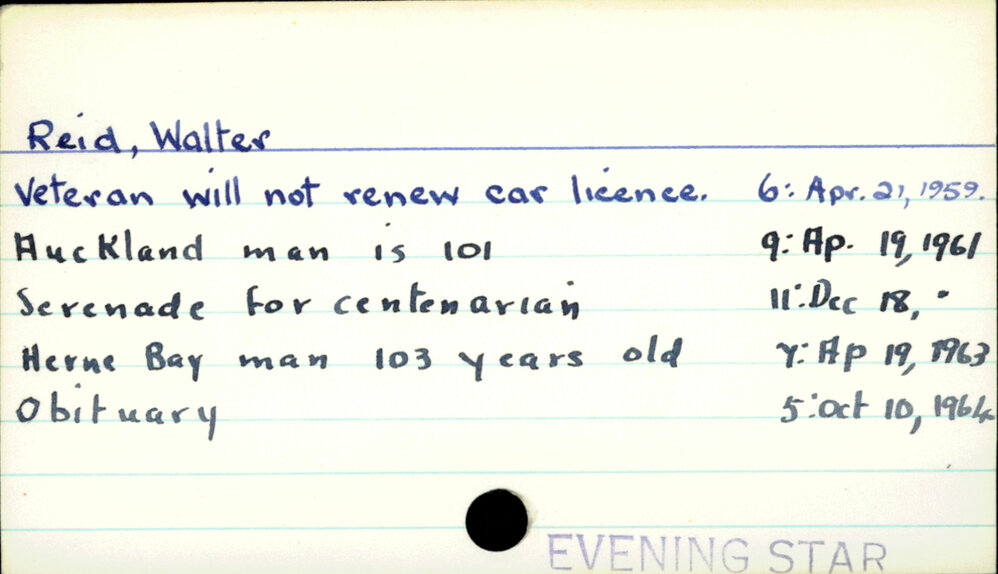 Reid, Walter
Veteran will not renew car licence. 6: Apr. 21, 1959.
Auckland man is 101 9: Ap. 19, 1961
Serenade for centenarian 11: Dec 18, "
Herne Bay man 103 years old Y: Ap 19, 1963
Obituary 5: Oct 10, 1964
EVENING STAR